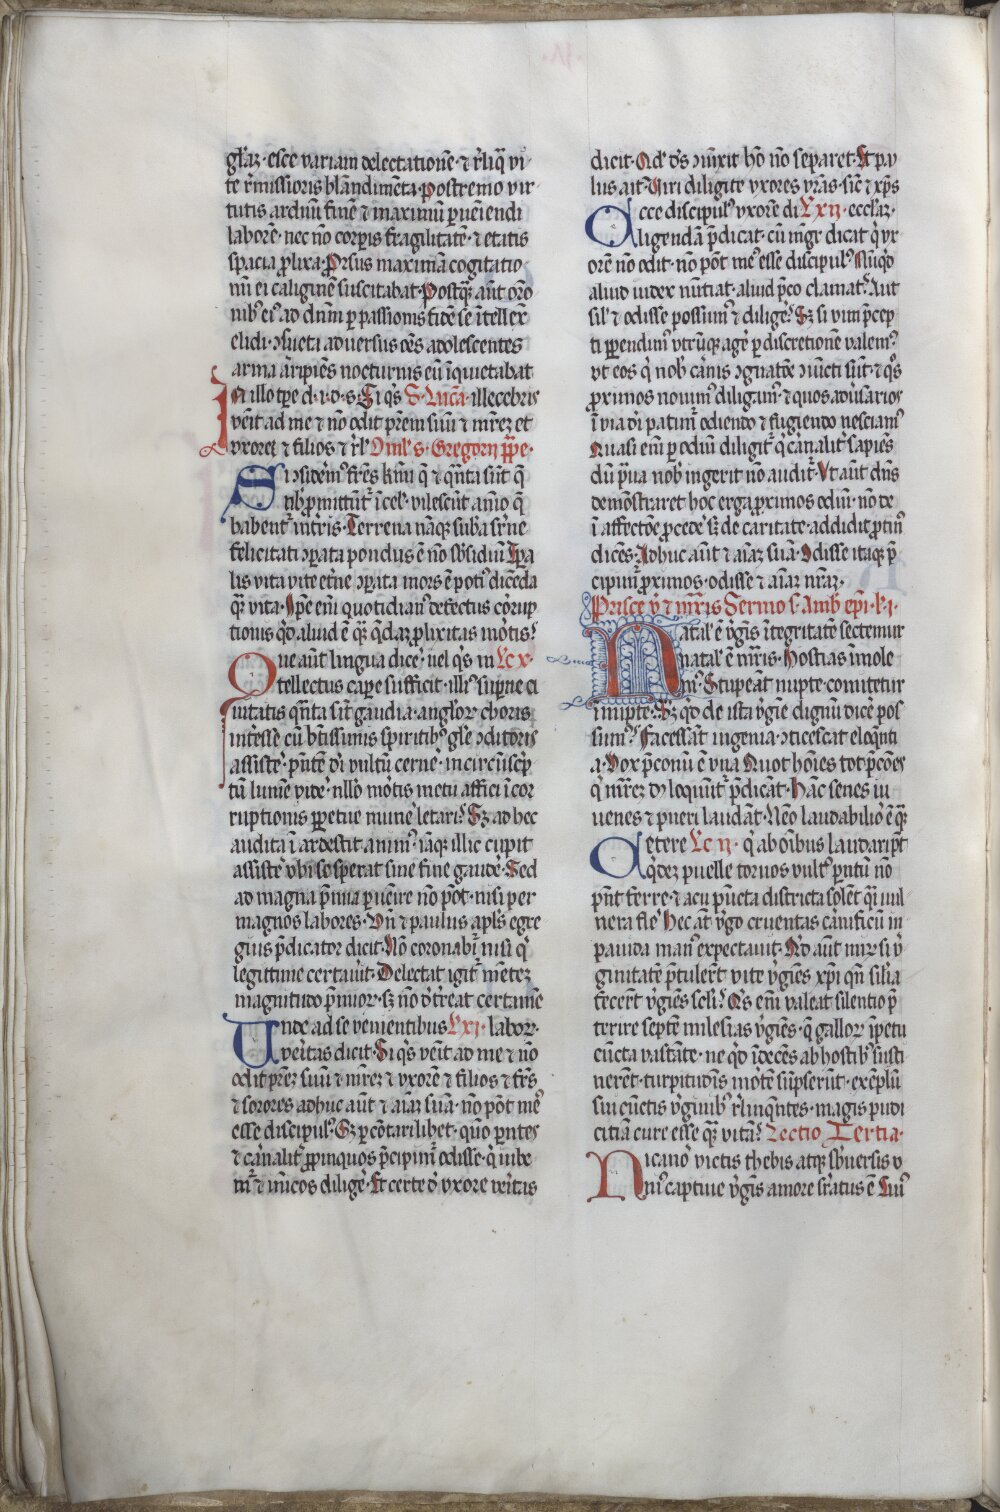 gl'az· esce variam delectationē· ⁊ r̄liq̄ vi
te r̄missioris blandimēta· postremo vir
tutis arduū finē ⁊ maximū ꝑuēiendi
laborē· nec nō corꝑis fragilitatē· ⁊ etatis
spacia ꝓlixa· Prsus maximā cogitatio
nū ei caliginē suscitabat· Postq̄ȝ aūt oro
nibꝰ eiꝰ ad dn̄m ꝑ passionis fidē se ītell'ex
elidi· ꝯsueti aduersus oēs adolescentes
arma arripiēs nocturnis eū īquietabat
In illo tꝑe d· i· d· s· Si q̄s S· Lucā· illecebris
veīt ad me ⁊ nō odit pr̄em suū ⁊ mr̄eȝ et
vxoreȝ ⁊ filios ⁊ r̄l' Oml' s· Gregorij pp̄e·
Si ꝯsidem' fr̄es km̄i q̄ ⁊ q̄nta sūt q̄
nb' ꝓmittūt' ī cel'· vilescūt aīo q̄
habent' in tr̄is· Terrena nāq̄ suba sr̄ne
felicitati ꝯꝑata pondus ē nō sb̄sidiū Tꝑa
lis vita vite et'ne ꝯꝑata mors ē poti' dicēda
q̄ȝ vita· Ipē em̄ quotidian' defectus corrup
tionis qd̄ aliud ē q̄ȝ q̄daȝ ꝓlixitas mortis?
Que aūt lingua dice' uel q̄s in Lc x·
tellectus caꝑe sufficit· ill' suꝑne ci
uitatis q̄nta sīt gaudia· angl'or choris
interesse cū btissimis spiritibꝰ gl'e ꝯditoris
assiste'· p̄ntē dī vultū cerne'· incircūsc'p
tū lumē vide'· nllo mortis metu affici īcor
ruptionis ꝑpetue mune' letari? Sȝ ad hec
audita īardescit anim'· iāq̄ illic cupit
assiste' vbi se sperat sine fine gaude'· Sed
ad magna p̄mia ꝑuēire nō pōt· nisi per
magnos labores· Vn̄ ⁊ paulus apl's egre
gius p̄dicator dicit· Nō coronabi' nisi q'
legittime certauit· Delectat igit' mēteȝ
magnitudo p̄mior· sȝ nō d'treat certamē
Unde ad se venientibus Lxj· labor·
veritas dicit· Si q̄s veīt ad me ⁊ nō
odit pr̄eȝ suū ⁊ mr̄eȝ ⁊ vxorē ⁊ filios ⁊ fr̄s
⁊ sorores adhuc aūt ⁊ aīaȝ suā· nō pōt me'
esse discipul'· Sȝ ꝑcōtari libet· quō ꝑntes
⁊ carnalit' ꝓpinquos p̄cipim' odisse· q' iube
m' ⁊ inīcos dilige'· Et certe d' vxore veritas
dicit· Qd' ds̄ ꝯiūxit hō nō separet· Et pau
lus ait· Viri diligite vxores vr̄as· sic' ⁊ xp̄s
Ecce discipul' vxorē di Lxij· eccl'aȝ·
ligendā p̄dicat· cū mgr̄ dicat q' vx
orē nō odit· nō pōt me' esse discipul'· Nūq'd
aliud iudex nūtiat· aliud p̄co clamat? Aut
sil' ⁊ odisse possum' ⁊ dilige'? Sȝ si vim p̄cep
ti ꝑpendim' vtrūq̄ age' ꝑ discretionē valem'
vt eos q' nob' carnis ꝯgnatōe ꝯiūcti sūt· ⁊ q̄s
ꝓximos nouim' diligam'· ⁊ quos aduersarios
ī via dī patim' odiendo ⁊ fugiendo nesciam'
Quasi em̄ ꝑ odiū diligit' q' carnalit' sapiēs
dū p̄ua nob' ingerit nō audit'· Vt aūt dn̄s
demōstraret hoc erga ꝓximos odiū· nō de
ī affectōe ꝓcede' sȝ de caritate· addidit ꝓtin'
dicēs· Adhuc aūt ⁊ aīaȝ suā· Odisse itaq̄ p̄
cipim' ꝓximos· odisse ⁊ aīaȝ nr̄aȝ·
Prisce v' ⁊ mr̄is Sermo s· Amb' ep̄i· l' i·
Natal' ē v'gīs ītegritatē sectemur
natal' ē mr̄is· Hostias īmole
m'· Stupeāt nupte· comitetur
īnupte· Sȝ qd̄ de ista v'gīe dignū dicē pos
sum'? Facessāt ingenia· ꝯticescat eloq̄nti
a· Vox p̄conū ē vna Quot hoīes tot p̄cōes
q' mr̄eȝ dȝ loquūt' p̄dicāt· Hāc senes iu
uenes ⁊ pueri laudāt· Nēo laudabilio' ē q̄ȝ
Cetere Lc ij· q' ab oībus laudari pt̄
q'deȝ puelle toruos vult' ꝑntū nō
pn̄t ferre· ⁊ acu pūcta districta solēt q̄i vul
nera fle' Hec at' v'go cruentas carnificū in
pauida man' expectauit· Qd aūt mir' si v'
ginitatē p̄tulerīt vite v'gīes xp̄i qn̄ silia
fecerīt v'gīes scli? Q's em̄ valeat silentio p̄
terire septē milesias v'gīes· q̄ gallor īpetu
cūcta vastāte· ne q'd īdecēs ab hostibꝰ susti
nerēt· turpitudis mortē sūpserūt· exēplū
sui cūctis v'ginibꝰ r̄linquētes· magis pudi
citiā cure esse q̄ȝ vitā? Lectio Tertia·
Nicano' victis thebis atq̄ sb̄uersis v
ni' captiue v'gīs amore s'ratus ē Cui'